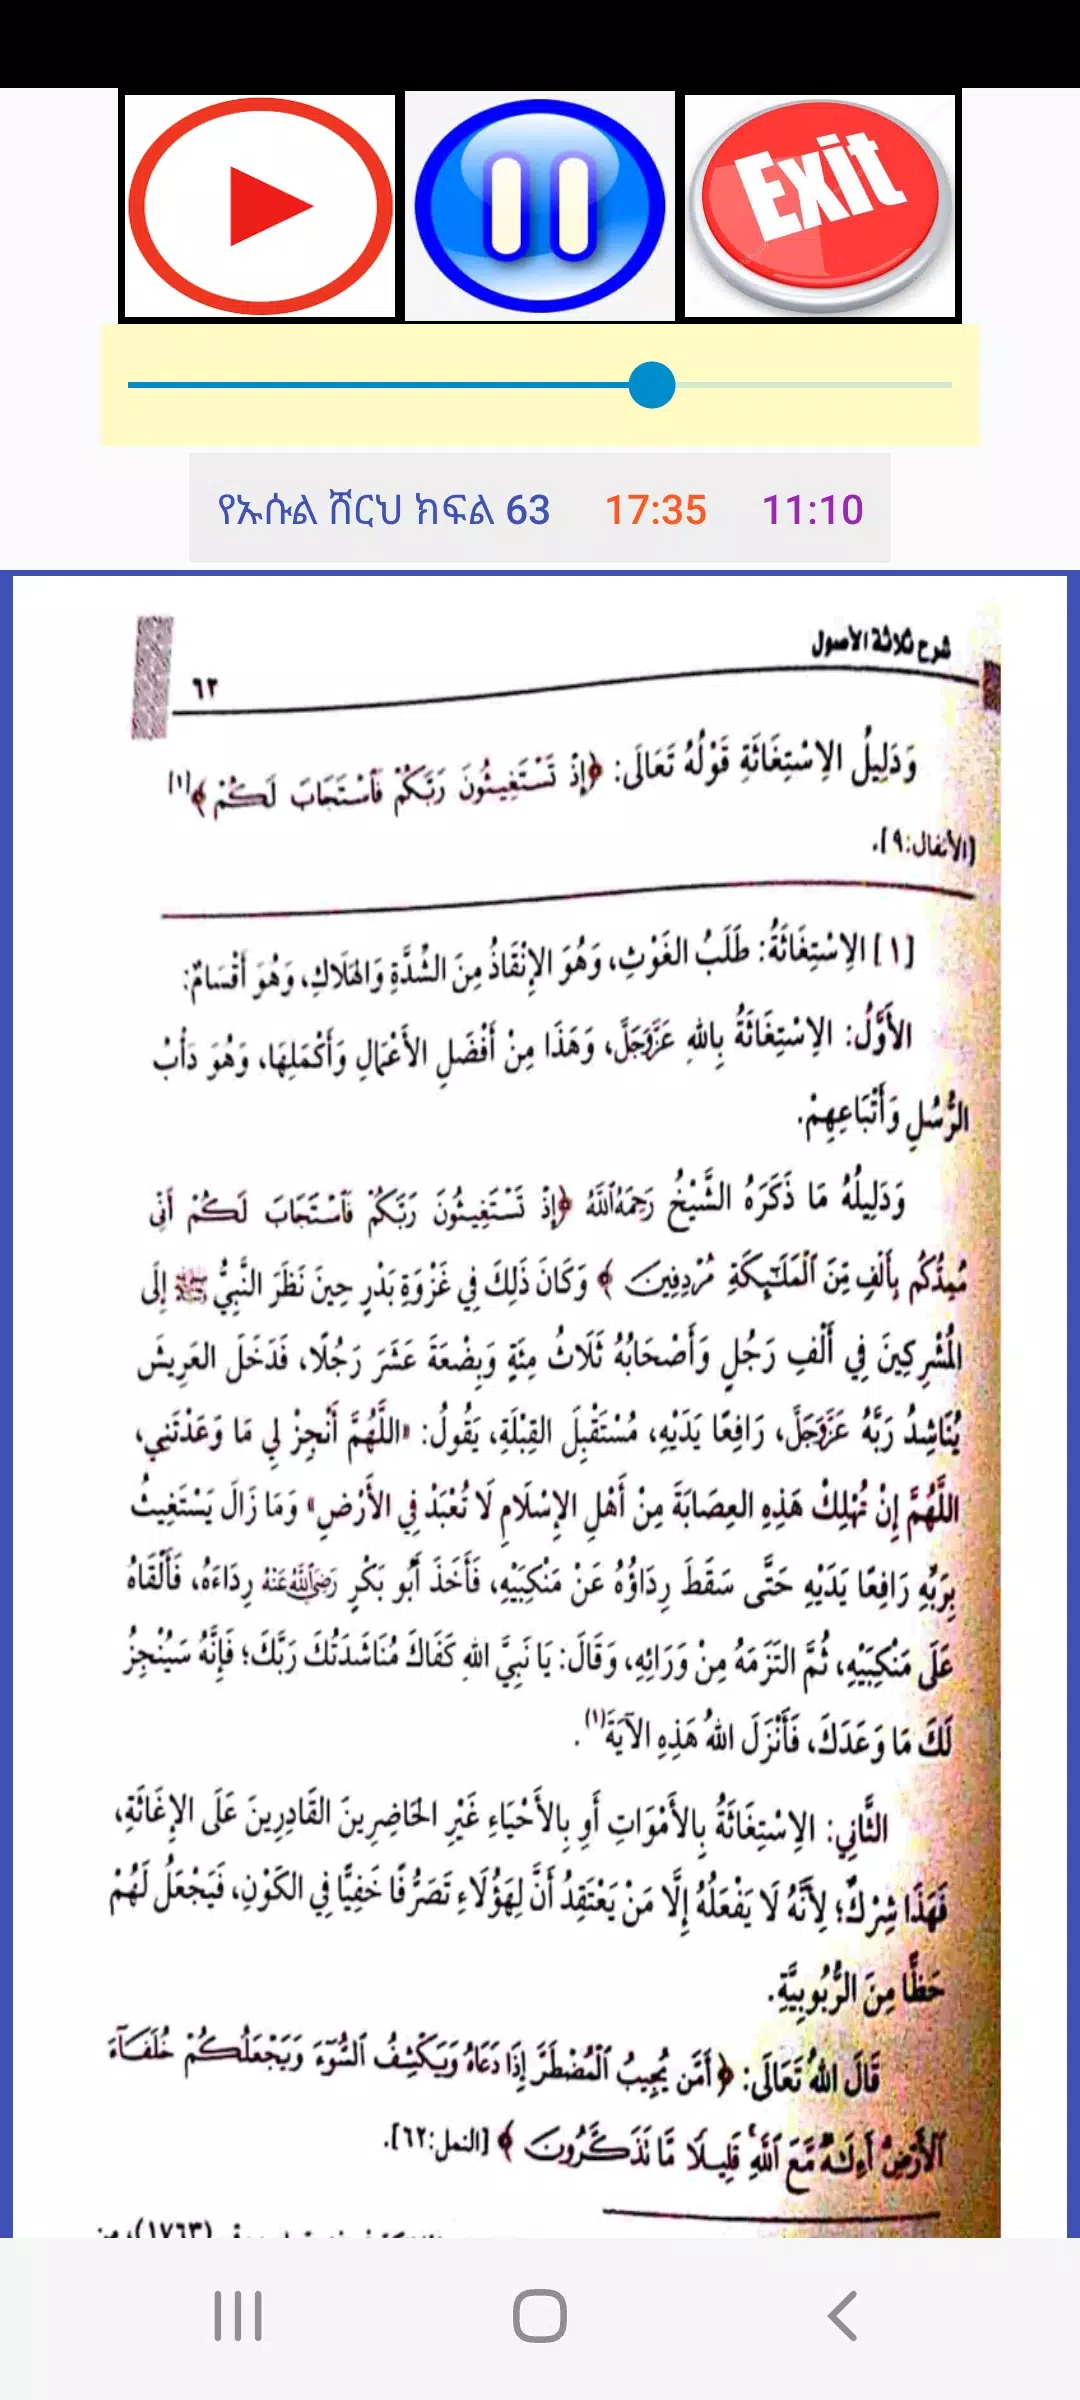 Exit
የኡሱል ሸርህ ክፍል 63 17:35 11:10
شرح ثلاثة الأصول
٦٣
وَدَلِيلُ الِاسْتِغَاثَةِ قَوْلُهُ تَعَالَى: ﴿إِذْ تَسْتَغِيثُونَ رَبَّكُمْ فَٱسْتَجَابَ لَكُمْ﴾[١]
[الأنفال:٩].
[١] الِاسْتِغَاثَةُ: طَلَبُ الغَوْثِ، وَهُوَ الإِنْقَاذُ مِنَ الشِّدَّةِ وَالهَلَاكِ، وَهُوَ أَقْسَامٌ:
الأَوَّلُ: الِاسْتِغَاثَةُ بِاللهِ عَزَّوَجَلَّ، وَهَذَا مِنْ أَفْضَلِ الأَعْمَالِ وَأَكْمَلِهَا، وَهُوَ دَأْبُ
الرُّسُلِ وَأَتْبَاعِهِمْ.
وَدَلِيلُهُ مَا ذَكَرَهُ الشَّيْخُ رَحِمَهُ ٱللَّهُ ﴿إِذْ تَسْتَغِيثُونَ رَبَّكُمْ فَٱسْتَجَابَ لَكُمْ أَنِّى
مُمِدُّكُم بِأَلْفٍ مِّنَ ٱلْمَلَٰٓئِكَةِ مُرْدِفِينَ﴾ وَكَانَ ذَلِكَ فِي غَزْوَةِ بَدْرٍ حِينَ نَظَرَ النَّبِيُّ ﷺ إِلَى
المُشْرِكِينَ فِي أَلْفِ رَجُلٍ وَأَصْحَابُهُ ثَلَاثُ مِئَةٍ وَبِضْعَةَ عَشَرَ رَجُلًا، فَدَخَلَ العَرِيشَ
يُنَاشِدُ رَبَّهُ عَزَّوَجَلَّ، رَافِعًا يَدَيْهِ، مُسْتَقْبِلَ القِبْلَةِ، يَقُولُ: «اللَّهُمَّ أَنْجِزْ لِي مَا وَعَدْتَنِي،
اللَّهُمَّ إِنْ تُهْلِكْ هَذِهِ العِصَابَةَ مِنْ أَهْلِ الإِسْلَامِ لَا تُعْبَدْ فِي الأَرْضِ» وَمَا زَالَ يَسْتَغِيثُ
بِرَبِّهِ رَافِعًا يَدَيْهِ حَتَّى سَقَطَ رِدَاؤُهُ عَنْ مَنْكِبَيْهِ، فَأَخَذَ أَبُو بَكْرٍ رَضِيَ ٱللَّهُ عَنْهُ رِدَاءَهُ، فَأَلْقَاهُ
عَلَى مَنْكِبَيْهِ، ثُمَّ التَزَمَهُ مِنْ وَرَائِهِ، وَقَالَ: يَا نَبِيَّ اللهِ كَفَاكَ مُنَاشَدَتُكَ رَبَّكَ؛ فَإِنَّهُ سَيُنْجِزُ
لَكَ مَا وَعَدَكَ، فَأَنْزَلَ اللهُ هَذِهِ الآيَةَ(١).
الثَّانِي: الِاسْتِغَاثَةُ بِالأَمْوَاتِ أَوِ بِالأَحْيَاءِ غَيْرِ الحَاضِرِينَ القَادِرِينَ عَلَى الإِغَاثَةِ،
فَهَذَا شِرْكٌ؛ لِأَنَّهُ لَا يَفْعَلُهُ إِلَّا مَنْ يَعْتَقِدُ أَنَّ لِهَؤُلَاءِ تَصَرُّفًا خَفِيًّا فِي الكَوْنِ، فَيَجْعَلُ لَهُمْ
حَظًّا مِنَ الرُّبُوبِيَّةِ.
قَالَ اللهُ تَعَالَى: ﴿أَمَّن يُجِيبُ ٱلْمُضْطَرَّ إِذَا دَعَاهُ وَيَكْشِفُ ٱلسُّوٓءَ وَيَجْعَلُكُمْ خُلَفَآءَ
ٱلْأَرْضِ أَءِلَٰهٌ مَّعَ ٱللَّهِ قَلِيلًا مَّا تَذَكَّرُونَ﴾ [النمل:٦٢].
(١٧٦٣)، من